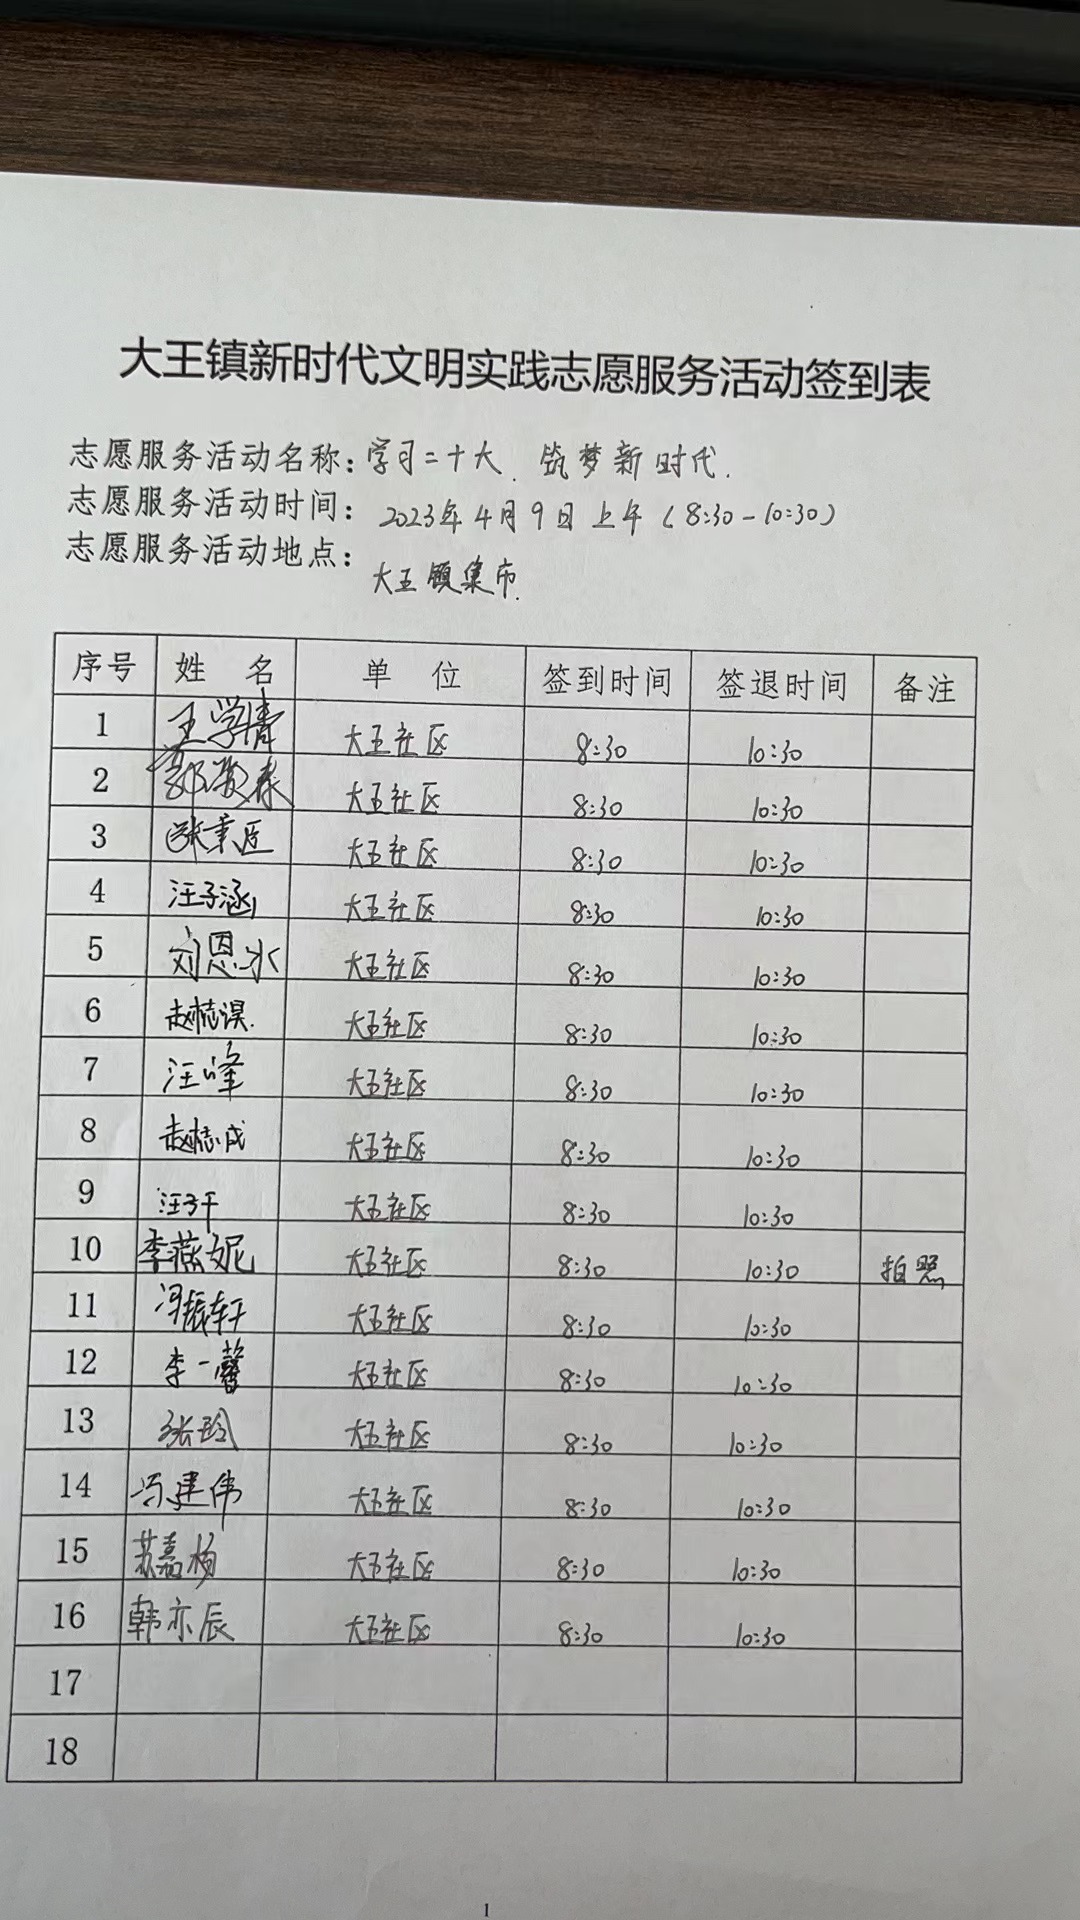 大王镇新时代文明实践志愿服务活动签到表
志愿服务活动名称：学习二十大、筑梦新时代.
志愿服务活动时间：2023年4月9日上午（8:30-10:30）
志愿服务活动地点：大王镇集市.
序号 姓名 单位 签到时间 签退时间 备注
1 王学清 大王社区 8:30 10:30
2 大王社区 8:30 10:30
3 大王社区 8:30 10:30
4 汪子涵 大王社区 8:30 10:30
5 刘恩水 大王社区 8:30 10:30
6 赵梽淏. 大王社区 8:30 10:30
7 汪峰 大王社区 8:30 10:30
8 赵梽成 大王社区 8:30 10:30
9 汪子千 大王社区 8:30 10:30
10 李燕妮 大王社区 8:30 10:30 拍照
11 冯振轩 大王社区 8:30 10:30
12 李一馨 大王社区 8:30 10:30
13 张玲 大王社区 8:30 10:30
14 冯建伟 大王社区 8:30 10:30
15 苏嘉杨 大王社区 8:30 10:30
16 韩亦辰 大王社区 8:30 10:30
17
18
1